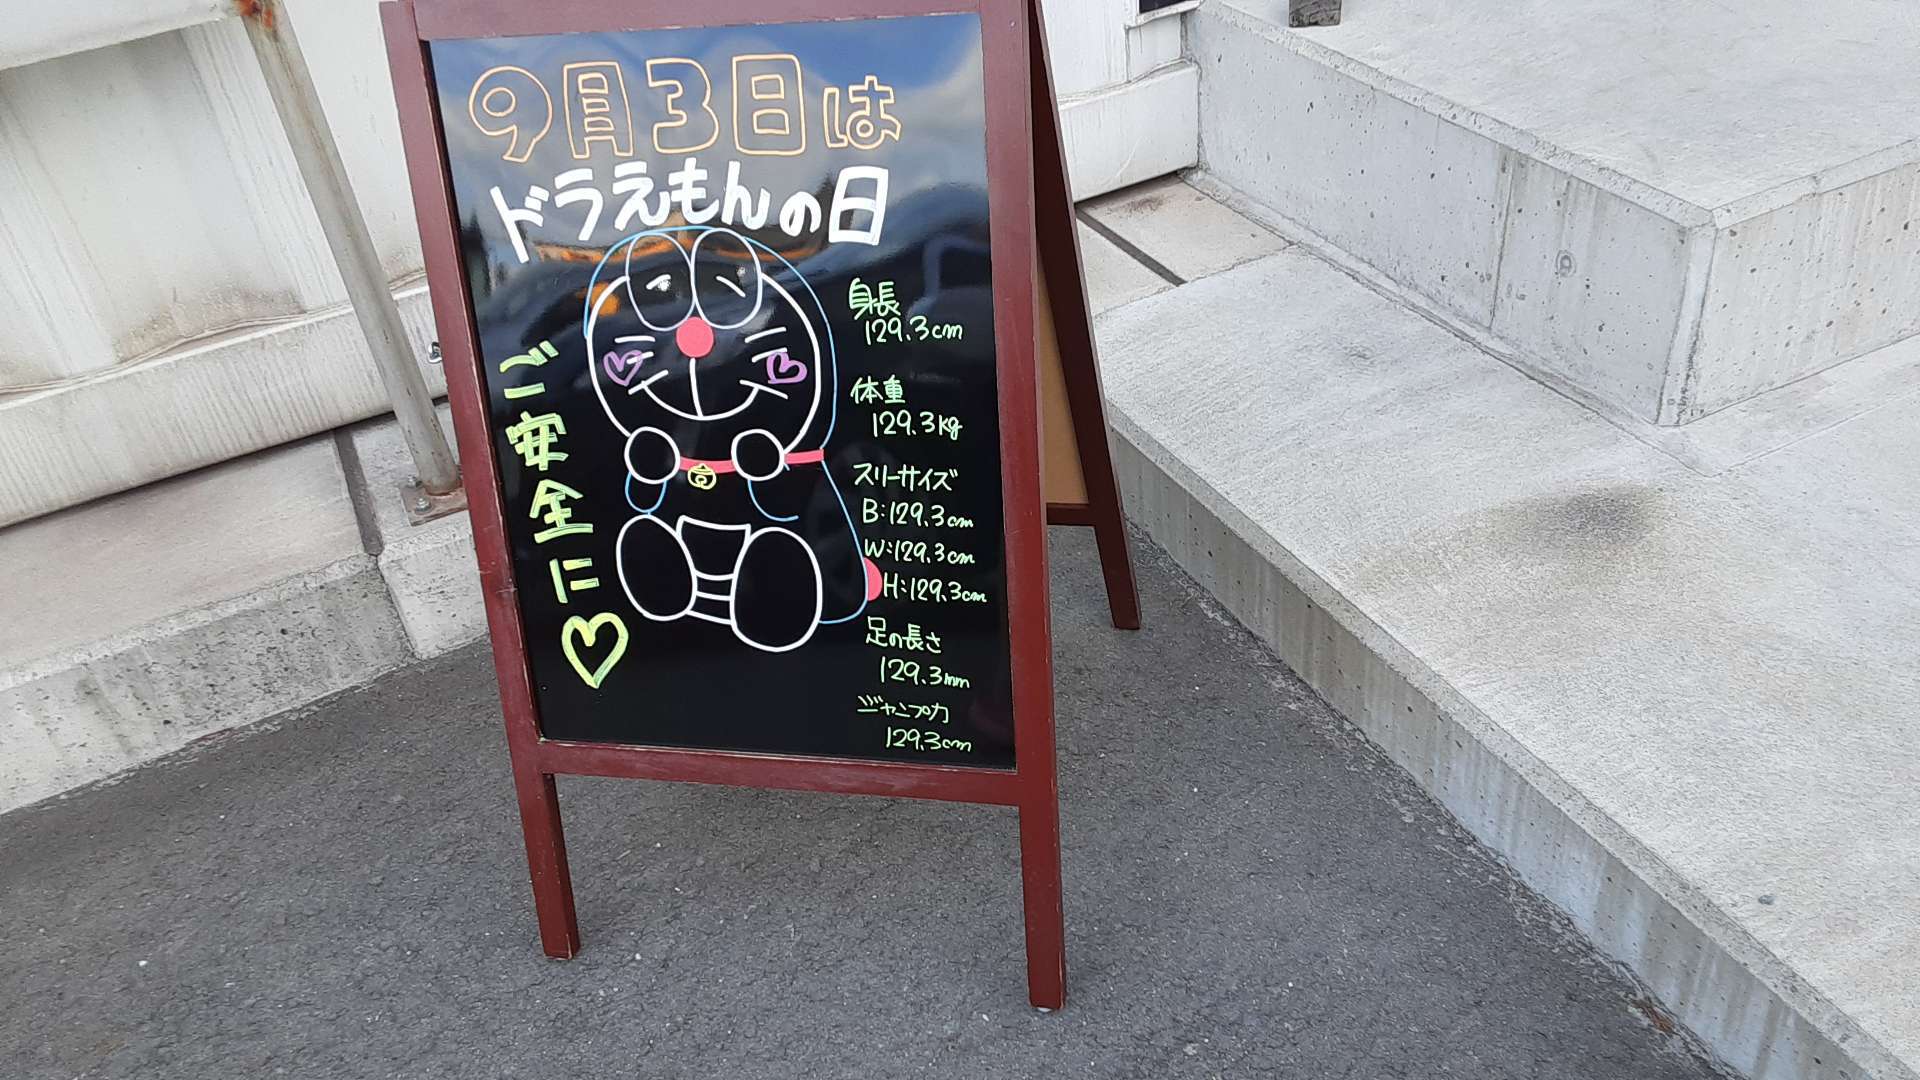 9月3日は
ドラえもんの日
ご安全に♡
身長
129.3cm
体重
129.3kg
スリーサイズ
B:129.3cm
W:129.3cm
H:129.3cm
足の長さ
129.3mm
ジャンプ力
129.3cm